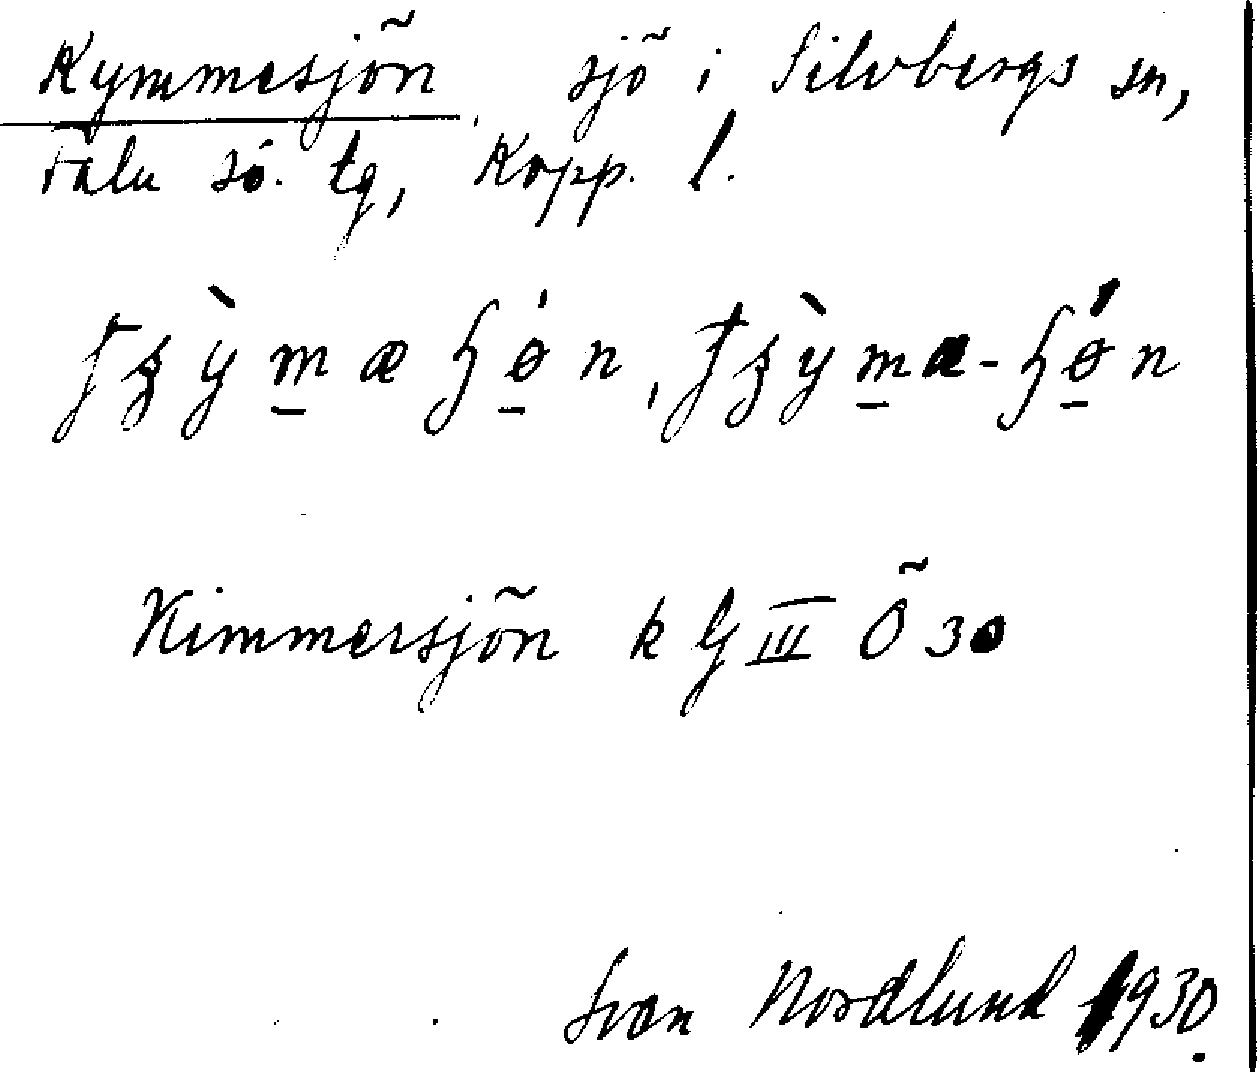 Kymmesjön, sjö i Silvbergs sn,
Falu sö. tg, Kopp. l.
Kimmersjön k G III Ö 30
Sven Nordlund 1930.